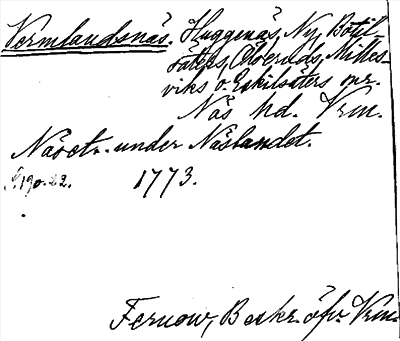 Vermlandsnäs. Huggenäs, Ny, Botil-
säters, Ölseruds, Millesviks
viks o. Eskilsäters snr.
Näs hd. Vrm.
Näset l. under Näslandet.
S. 190. 22. 1773.
Fernow, Beskr. öfv. Vrm.